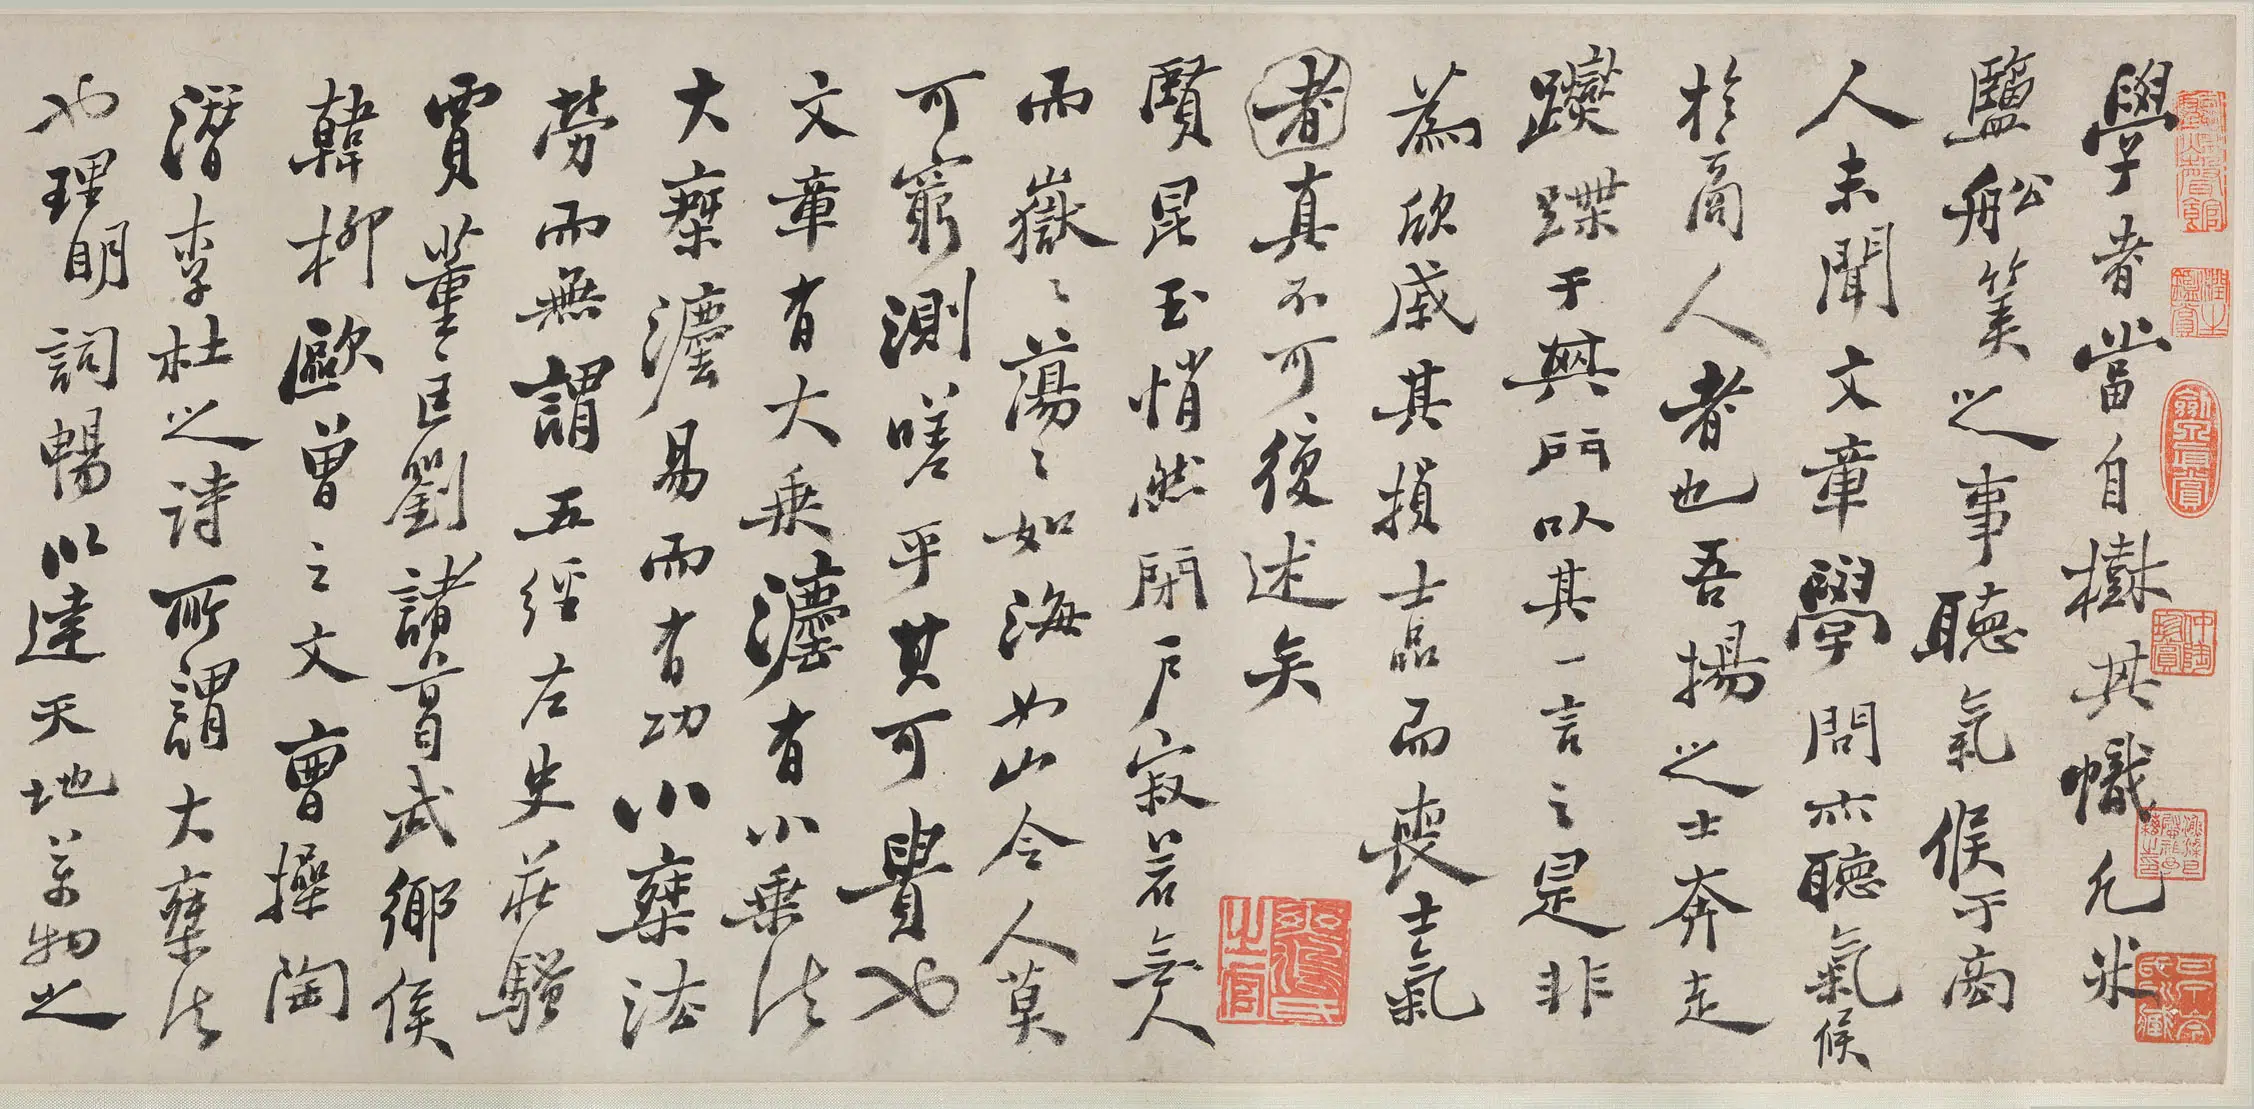 學者當自樹其幟凡米
鹽船筭之事聽氣候于商
人未聞文章學問亦聽氣候
於商人者也吾揚之士奔走
躞蹀于其門以其一言之是非
為欣戚其損士品而喪士氣
者真不可復述矣
賢昆玉悄然閉戶寂若無人
而嶽嶽蕩蕩如海如山令人莫
可窮測嗟乎其可貴也
文章有大乘灋有小乘法
大乘灋易而有功小乘法
勞而無謂五經左史莊騷
賈董匡劉諸葛武鄉侯
韓柳歐曾之文曹操陶
潛李杜之詩所謂大乘法
也理明詞暢以達天地萬物之